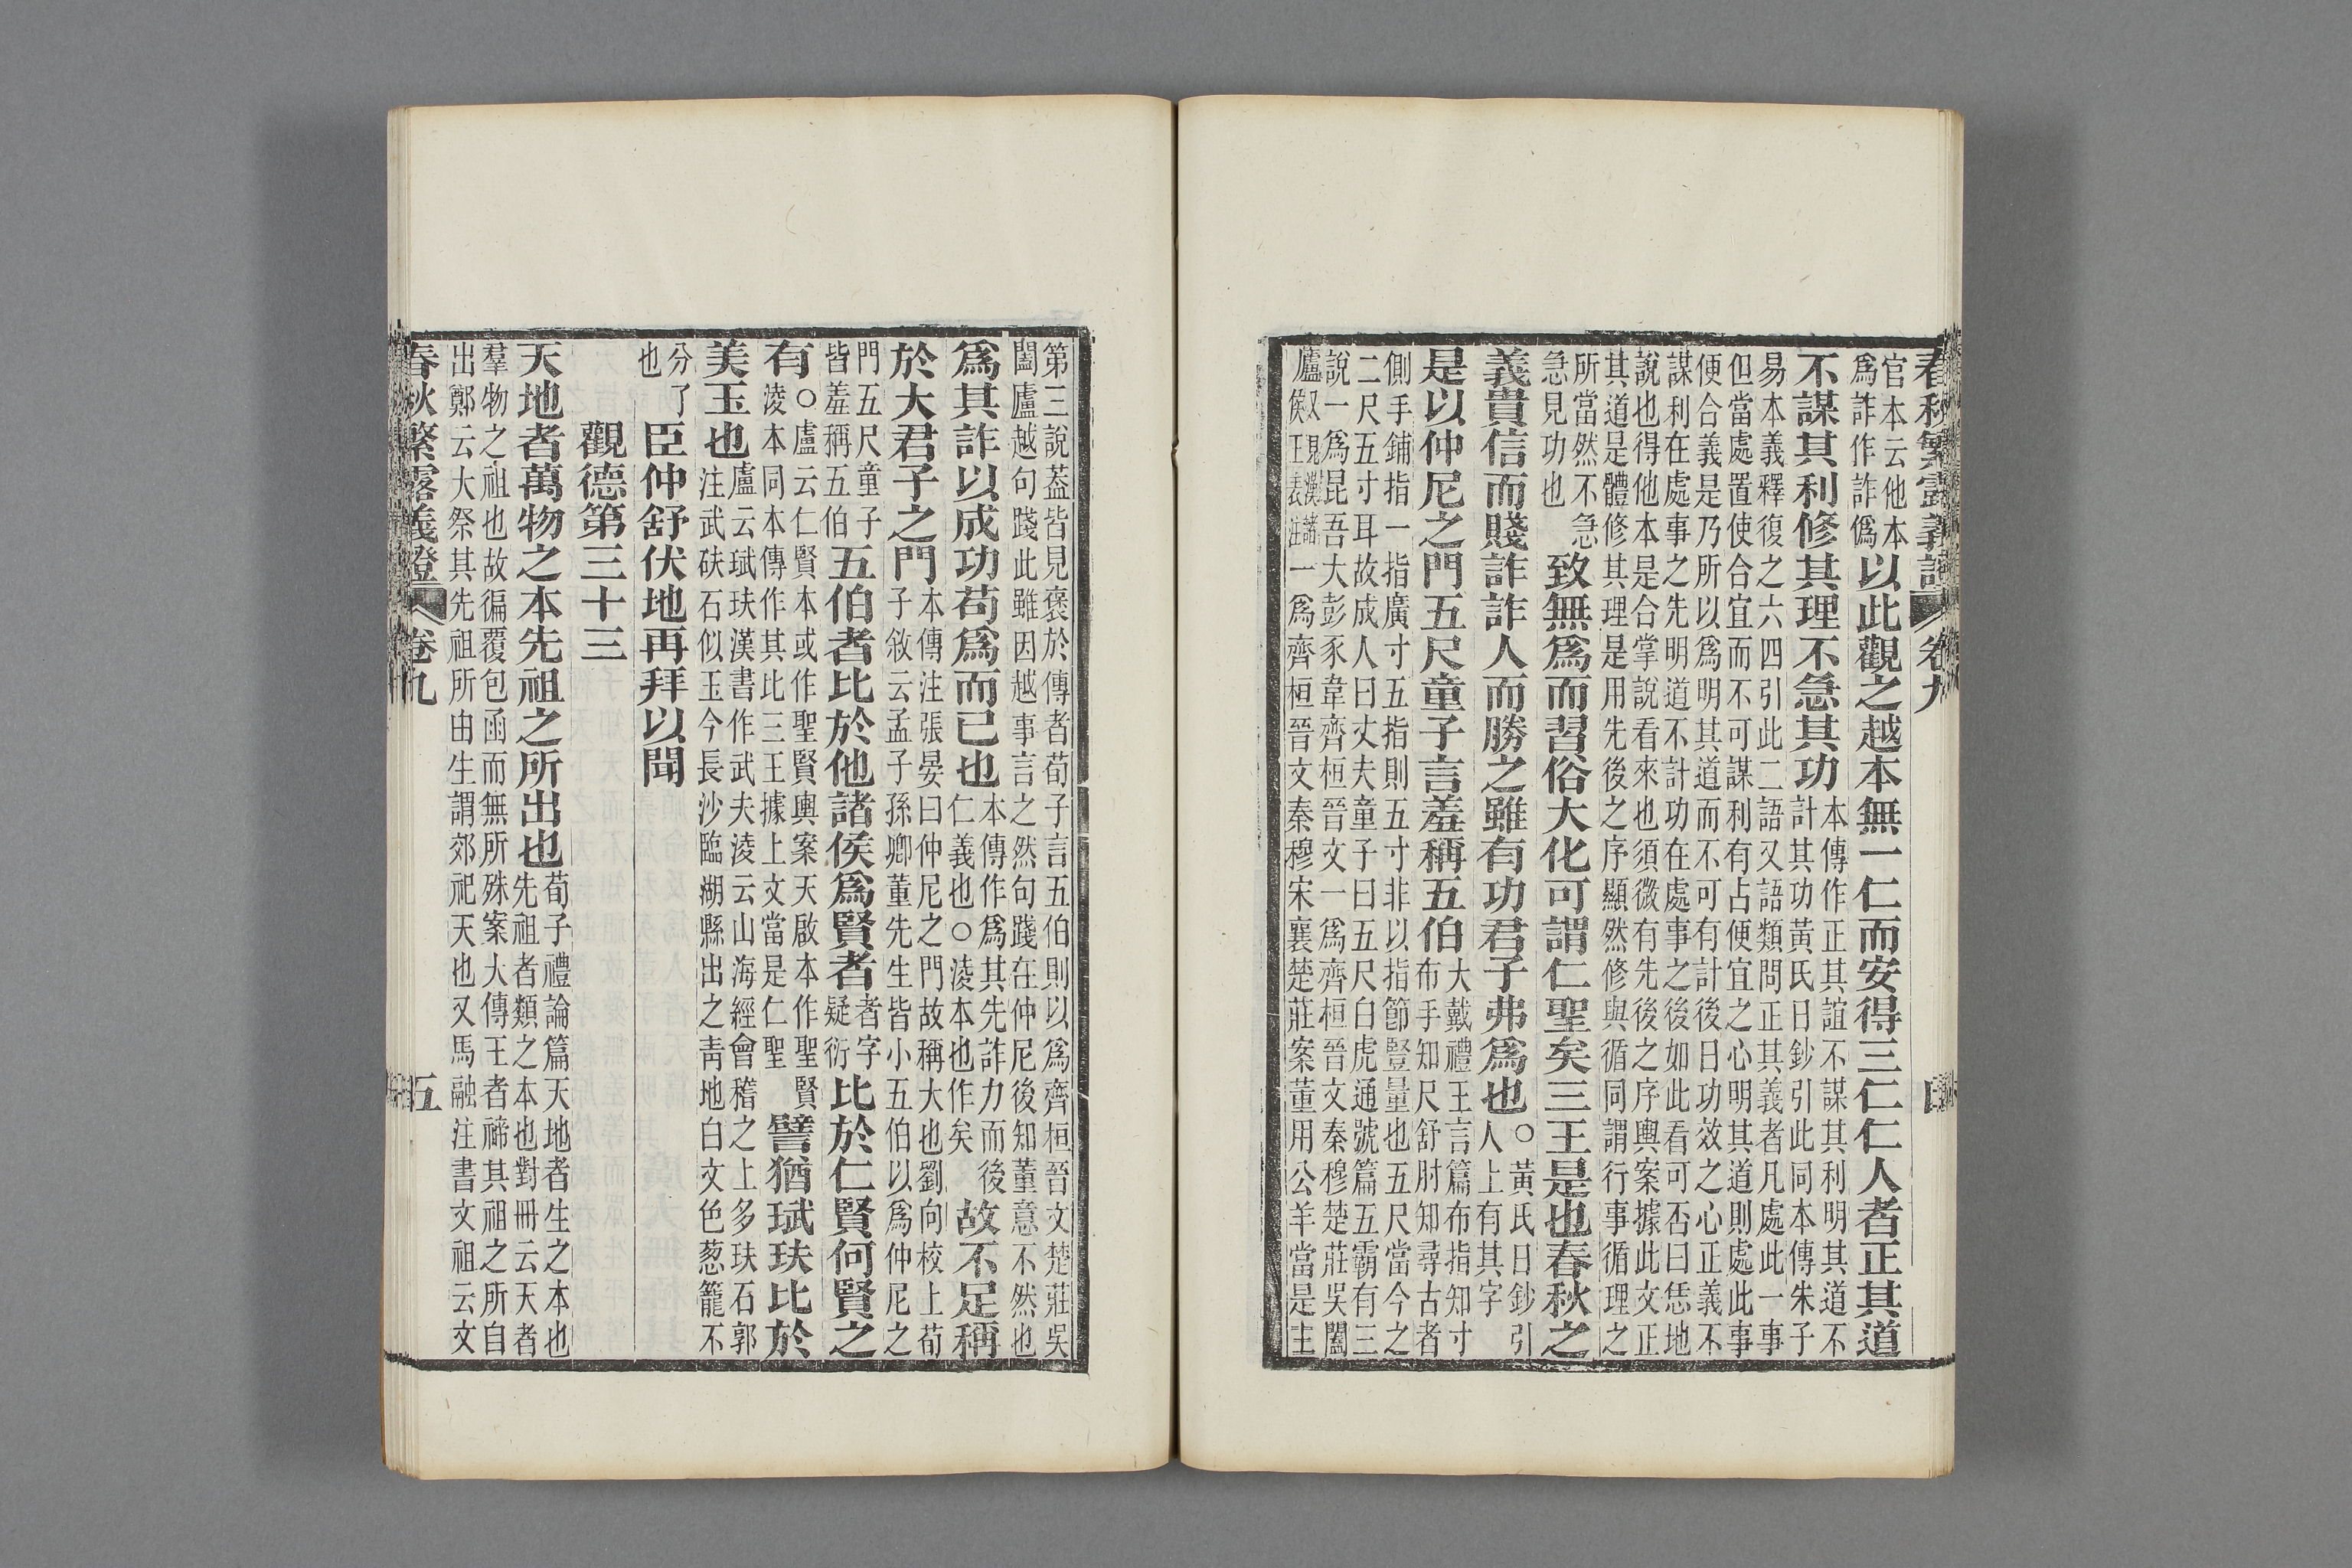 春秋繁露義證 卷九
官本云他本
爲詐作詐僞
以此觀之越本無一仁而安得三仁仁人者正其道
不謀其利修其理不急其功
本傳作正其誼不謀其利明其道不
計其功黃氏日鈔引此同本傳朱子
易本義釋復之六四引此二語又語類問正其義者凡處此一事
但當處置使合宜而不可謀利有占便宜之心明其道則處此事
便合義是乃所以爲明其道而不可有計後日功效之心正義不
謀利在處事之先明道不計功在處事之後如此看可否曰恁地
說也得他本是合掌說看來也須微有先後之序輿案據此文正
其道是體修其理是用先後之序顯然修與循同謂行事循理之
所當然不急
急見功也
致無爲而習俗大化可謂仁聖矣三王是也春秋之
義貴信而賤詐詐人而勝之雖有功君子弗爲也
○黃氏日鈔引
人上有其字
是以仲尼之門五尺童子言羞稱五伯
大戴禮王言篇布指知寸
布手知尺舒肘知尋古者
側手鋪指一指廣寸五指則五寸非以指節豎量也五尺當今之
二尺五寸耳故成人曰丈夫童子曰五尺白虎通號篇五霸有三
說一爲昆吾大彭豕韋齊桓晉文一爲齊桓晉文秦穆楚莊吳闔
廬又見漢諸
侯王表注
一爲齊桓晉文秦穆宋襄楚莊案董用公羊當是主
第三說葢皆見褒於傳者荀子言五伯則以爲齊桓晉文楚莊吳
闔廬越句踐此雖因越事言之然句踐在仲尼後知董意不然也
爲其詐以成功苟爲而已也
本傳作爲其先詐力而後
仁義也○淩本也作矣
故不足稱
於大君子之門
本傳注張晏曰仲尼之門故稱大也劉向校上荀
子敘云孟子孫卿董先生皆小五伯以爲仲尼之
門五尺童子
皆羞稱五伯
五伯者比於他諸侯爲賢者
者字
疑衍
比於仁賢何賢之
有
○盧云仁賢本或作聖賢輿案天啟本作聖賢
淩本同本傳作其比三王據上文當是仁聖
譬猶珷玞比於
美玉也
盧云珷玞漢書作武夫淩云山海經會稽之上多玞石郭
注武砆石似玉今長沙臨湖縣出之靑地白文色葱籠不
分了
也
臣仲舒伏地再拜以聞
觀德第三十三
天地者萬物之本先祖之所出也
荀子禮論篇天地者生之本也
先祖者類之本也對冊云天者
羣物之祖也故徧覆包函而無所殊案大傳王者禘其祖之所自
出鄭云大祭其先祖所由生謂郊祀天也又馬融注書文祖云文
春秋繁露義證 卷九 五